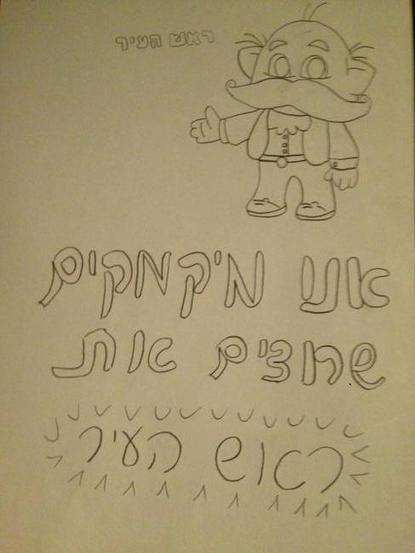 ראש העיר
אנו מיקמקים
שרוצים את
ראש העיר